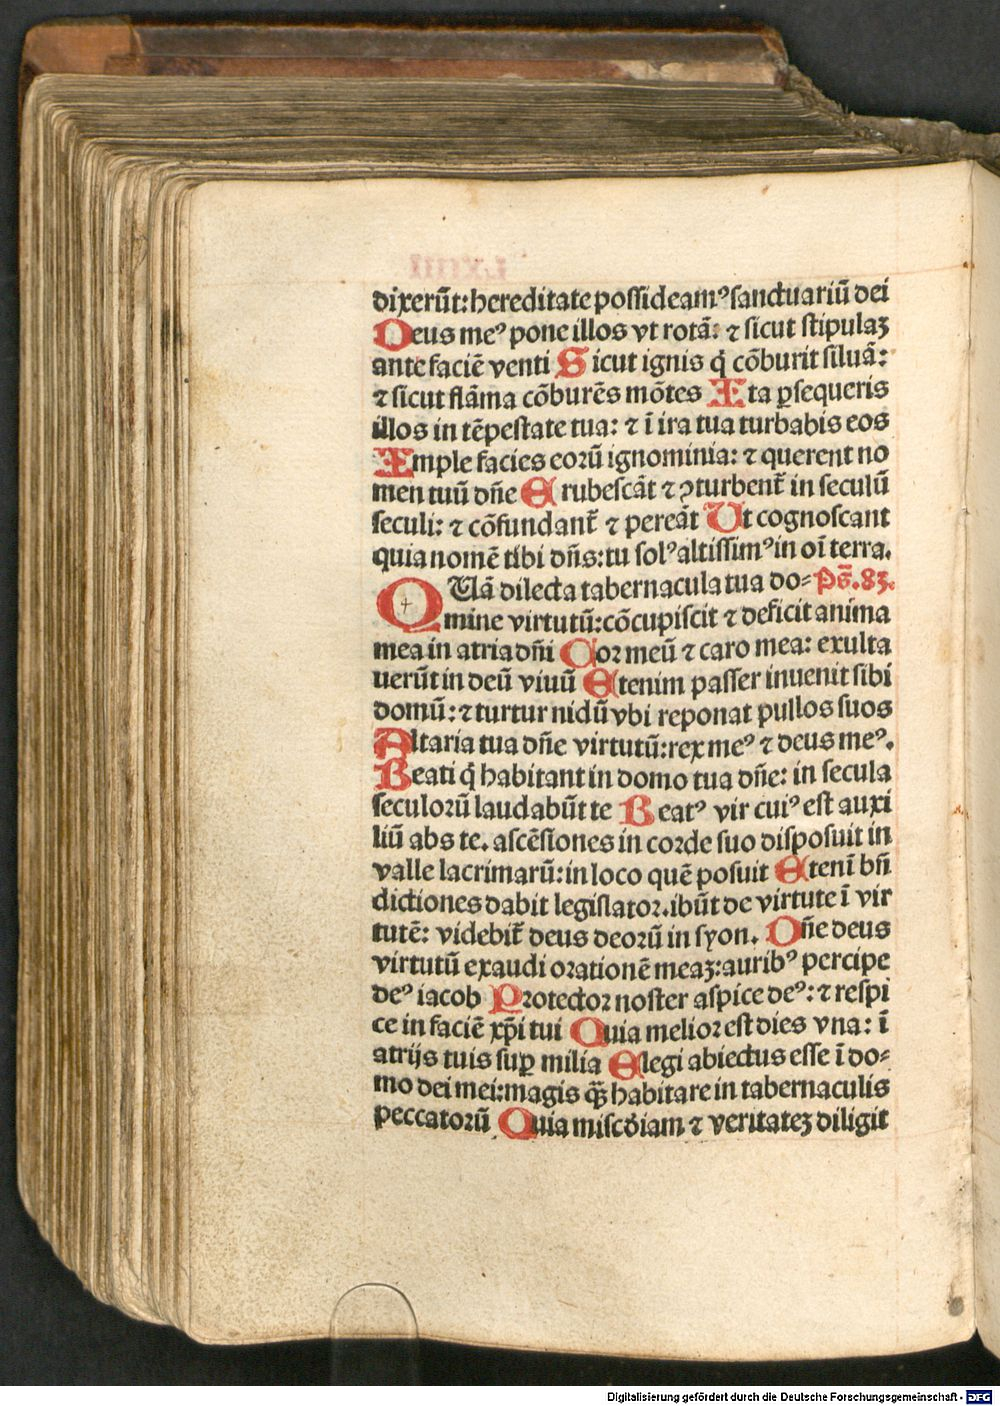 dixerūt: hereditate possideamꝰ sanctuariū dei
Deus meꝰ pone illos vt rotā: ⁊ sicut stipulaꝫ
ante faciē venti Sicut ignis q̇ cōburit siluā:
⁊ sicut flāma cōburēs mōtes Ita ꝑsequeris
illos in tēpestate tua: ⁊ ī ira tua turbabis eos
Imple facies eoꝛū ignominia: ⁊ querent no
men tuū dn̄e Erubescāt ⁊ ꝯturbent᷑ in seculū
seculi: ⁊ cōfundant᷑ ⁊ pereāt Ut cognoscant
quia nomē tibi dn̄s: tu solꝰ altissimꝰ in oī terra.
QUā dilecta tabernacula tua do⸗ Ps̄. 83.
mine virtutū: cōcupiscit ⁊ deficit anima
mea in atria dn̄i Coꝛ meū ⁊ caro mea: exulta
uerūt in deū viuū Etenim passer inuenit sibi
domū: ⁊ turtur nidū vbi reponat pullos suos
Altaria tua dn̄e virtutū: rex meꝰ ⁊ deus meꝰ.
Beati q̇ habitant in domo tua dn̄e: in secula
seculoꝛū laudabūt te Beatꝰ vir cuiꝰ est auxi
liū abs te. ascēsiones in coꝛde suo disposuit in
valle lacrimarū: in loco quē posuit Etenī bn̄
dictiones dabit legislatoꝛ. ibūt de virtute ī vir
tutē: videbit᷑ deus deoꝛū in syon. Dn̄e deus
virtutū exaudi oꝛationē meaꝫ: auribꝰ percipe
deꝰ iacob Pꝛotectoꝛ noster aspice deꝰ: ⁊ respi
ce in faciē xp̄i tui Quia melioꝛ est dies vna: ī
atrijs tuis suꝑ milia Elegi abiectus esse ī do⸗
mo dei mei: magis q̄ꝫ habitare in tabernaculis
peccatoꝛū Quia miscd̄iam ⁊ veritateꝫ diligit
Digitalisierung gefördert durch die Deutsche Forschungsgemeinschaft - DFG